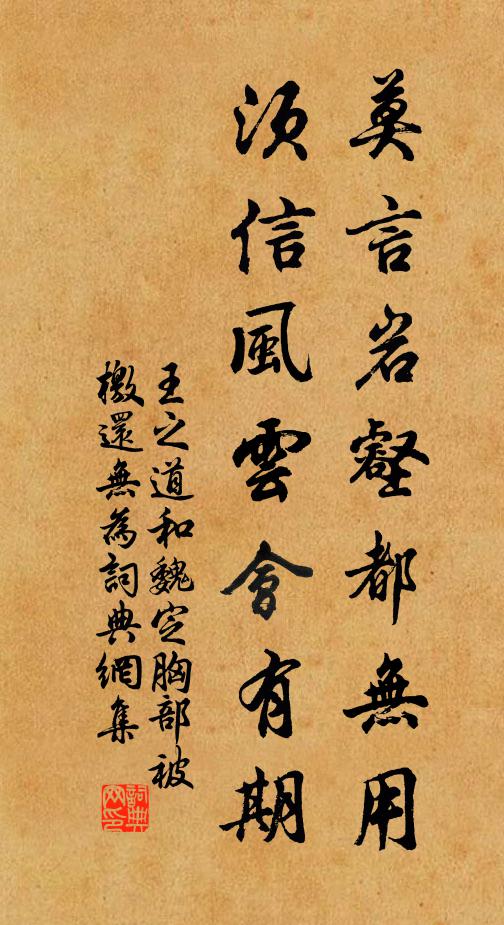 莫言岩壑都無用
須信風雲會有期
王之道和魏定胸部被
檄還無為詞典網集
詞典網印